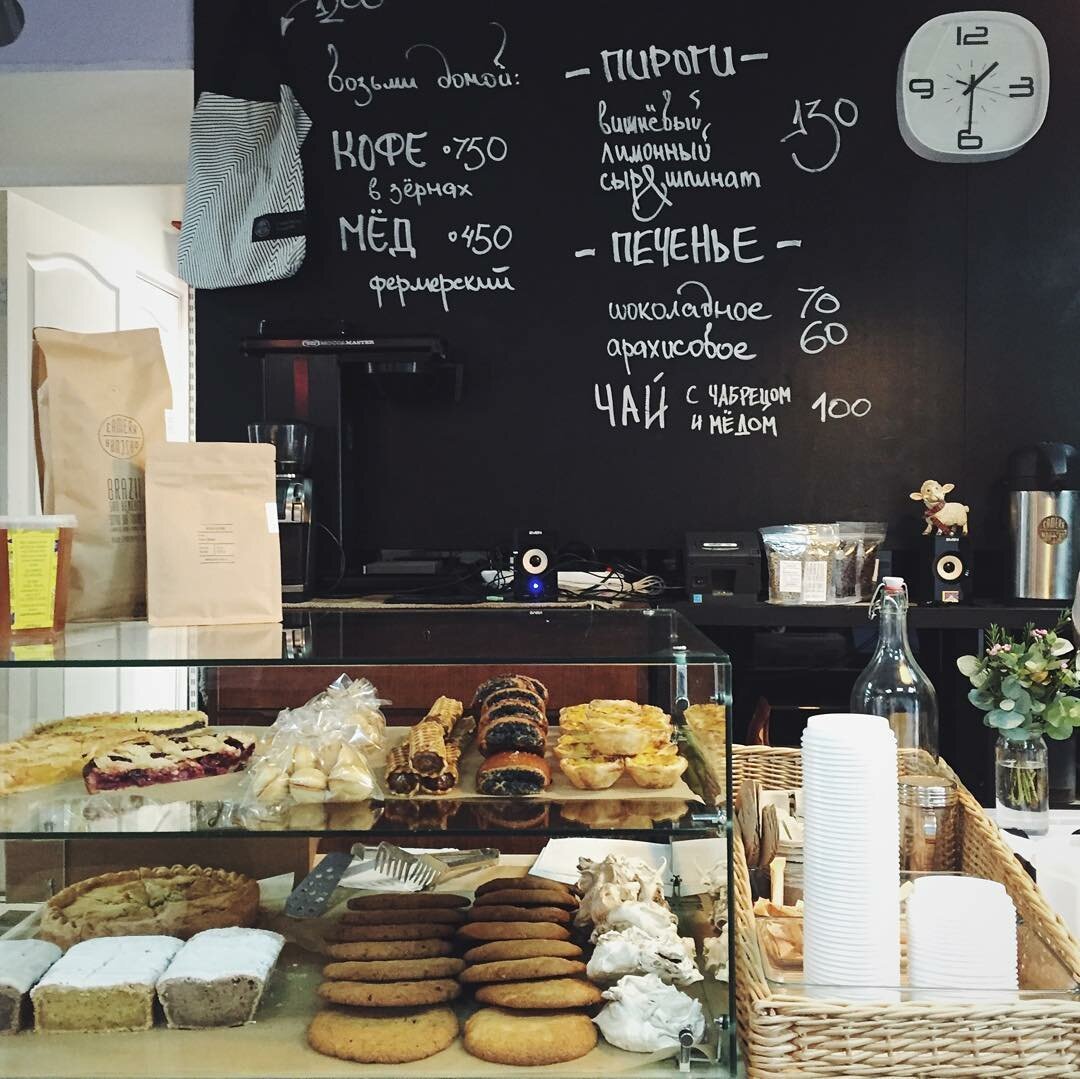 возьми домой:
КОФЕ 750
в зёрнах
МЁД 450
фермерский
- ПИРОГИ -
вишнёвый
лимонный 130
сыр & шпинат
- ПЕЧЕНЬЕ -
шоколадное 70
арахисовое 60
ЧАЙ С ЧАБРЕЦОМ 100
И МЁДОМ
12
3
6
9
MOCCAMASTER
BRAZIL
SVEN